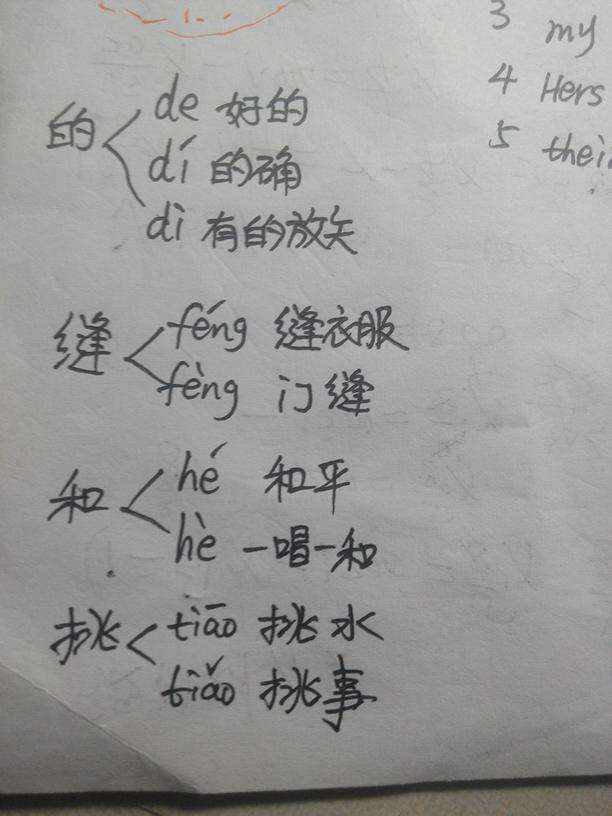 3 my
4 Hers
5
的 de 好的
dí 的确
dì 有的放矢
缝 féng 缝衣服
fèng 门缝
和 hé 和平
hè 一唱一和
挑 tiāo 挑水
tiǎo 挑事